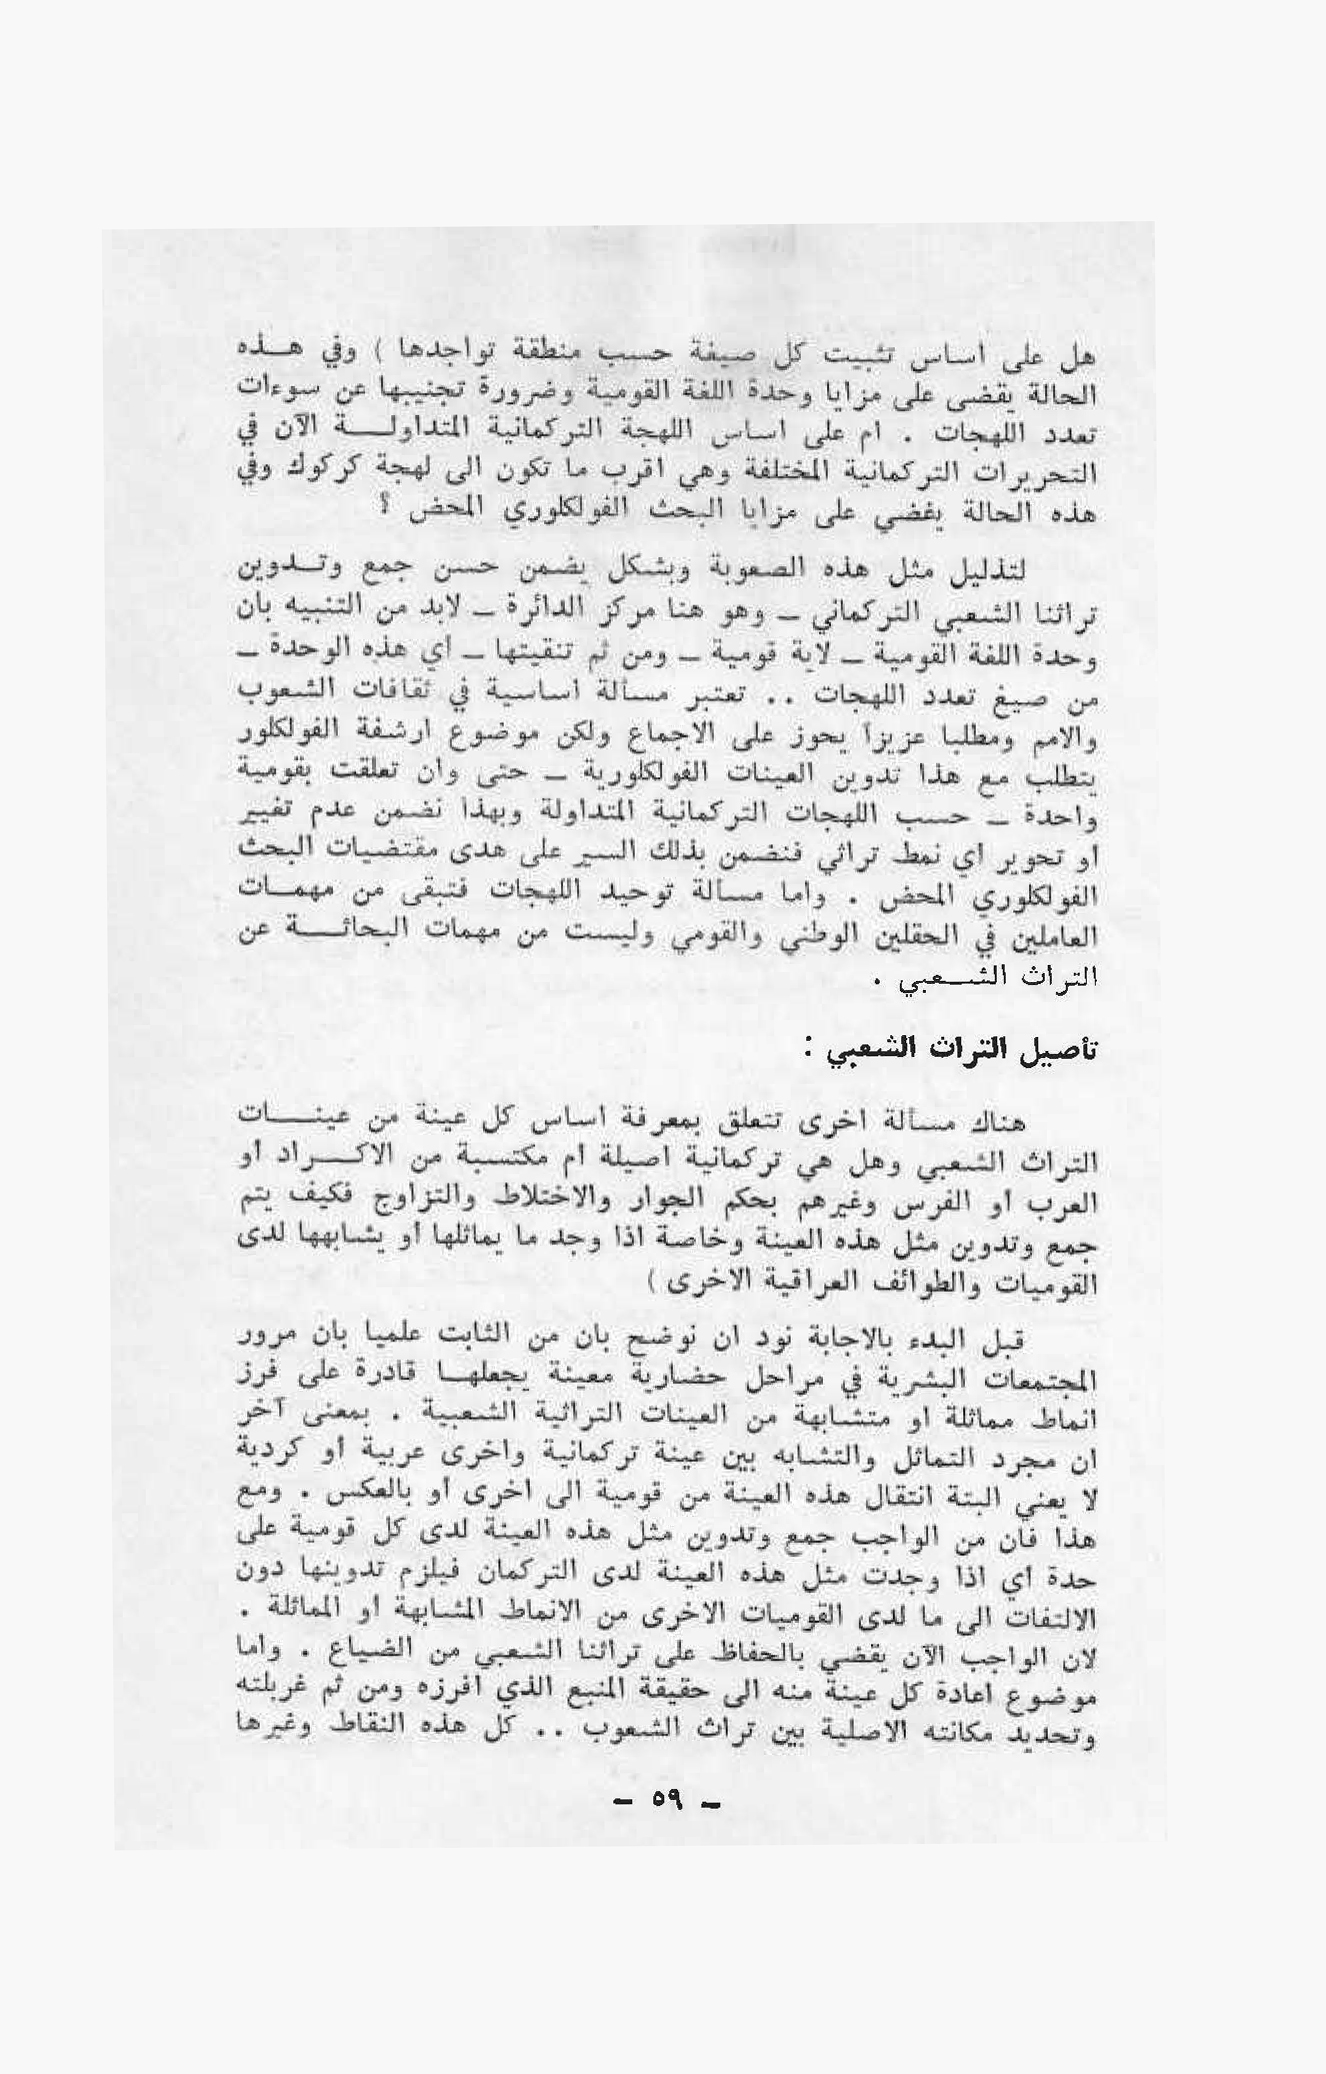 هل على اساس تثبيت كل صيغة حسب منطقة تواجدها ) وفي هذه
الحالة يقضى على مزايا وحدة اللغة القومية وضرورة تجنيبها عن سوءات
تعدد اللهجات . ام على اساس اللهجة التركمانية المتداولة الآن في
التحريرات التركمانية المختلفة وهي اقرب ما تكون الى لهجة كركوك وفي
هذه الحالة يغضي على مزايا البحث الفولكلوري المحض ؟
لتذليل مثل هذه الصعوبة وبشكل يضمن حسن جمع وتدوين
تراثنا الشعبي التركماني ــ وهو هنا مركز الدائرة ــ لابد من التنبيه بان
وحدة اللغة القومية ــ لاية قومية ــ ومن ثم تنقيتها ــ اي هذه الوحدة ــ
من صيغ تعدد اللهجات . . تعتبر مسألة اساسية في ثقافات الشعوب
والامم ومطلبا عزيزا يحوز على الاجماع ولكن موضوع ارشفة الفولكلور
يتطلب مع هذا تدوين العينات الفولكلورية ــ حتى وان تعلقت بقومية
واحدة ــ حسب اللهجات التركمانية المتداولة وبهذا نضمن عدم تغيير
او تحوير اي نمط تراثي فنضمن بذلك السير على هدى مقتضيات البحث
الفولكلوري المحض . واما مسألة توحيد اللهجات فتبقى من مهمات
العاملين في الحقلين الوطني والقومي وليست من مهمات البحاثة عن
التراث الشعبي .
تأصيل التراث الشعبي :
هناك مسألة اخرى تتعلق بمعرفة اساس كل عينة من عينات
التراث الشعبي وهل هي تركمانية اصيلة ام مكتسبة من الاكراد او
العرب او الفرس وغيرهم بحكم الجوار والاختلاط والتزاوج فكيف يتم
جمع وتدوين مثل هذه العينة وخاصة اذا وجد ما يماثلها او يشابهها لدى
القوميات والطوائف العراقية الاخرى )
قبل البدء بالاجابة نود ان نوضح بان من الثابت علميا بان مرور
المجتمعات البشرية في مراحل حضارية معينة يجعلها قادرة على فرز
انماط مماثلة او متشابهة من العينات التراثية الشعبية . بمعنى آخر
ان مجرد التماثل والتشابه بين عينة تركمانية واخرى عربية او كردية
لا يعني البتة انتقال هذه العينة من قومية الى اخرى او بالعكس . ومع
هذا فان من الواجب جمع وتدوين مثل هذه العينة لدى كل قومية على
حدة اي اذا وجدت مثل هذه العينة لدى التركمان فيلزم تدوينها دون
الالتفات الى ما لدى القوميات الاخرى من الانماط المشابهة او المماثلة .
لان الواجب الآن يقضي بالحفاظ على تراثنا الشعبي من الضياع . واما
موضوع اعادة كل عينة منه الى حقيقة المنبع الذي افرزه ومن ثم غربلته
وتحديد مكانته الاصلية بين تراث الشعوب . . كل هذه النقاط وغيرها
ــ ٥٩ ــ